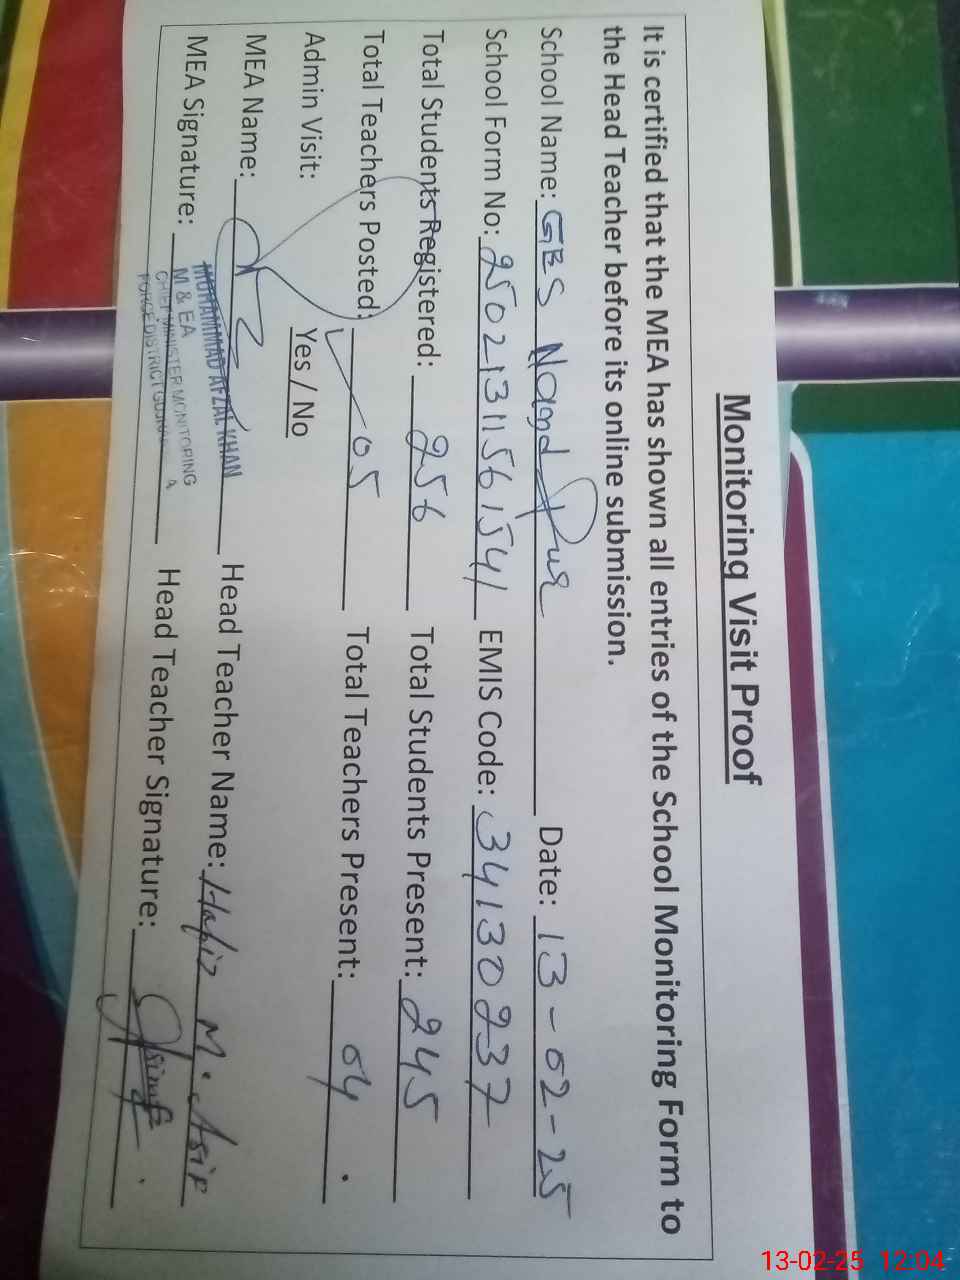 Monitoring Visit Proof
It is certified that the MEA has shown all entries of the School Monitoring Form to
the Head Teacher before its online submission.
School Name: GES Naqqd Pur Date: 13-02-25
School Form No: 2502131156 1541 EMIS Code: 34130237
Total Students Registered: 256 Total Students Present: 245
Total Teachers Posted: 05 Total Teachers Present: 04
Admin Visit: Yes / No
MEA Name: Head Teacher Name: Hafiz M. Asif
MUHAMMAD AFZAL KHAN
M & EA
CHIEF MINISTER MONITORING
FORCE DISTRICT
MEA Signature: Head Teacher Signature:
13-02-25 12:04